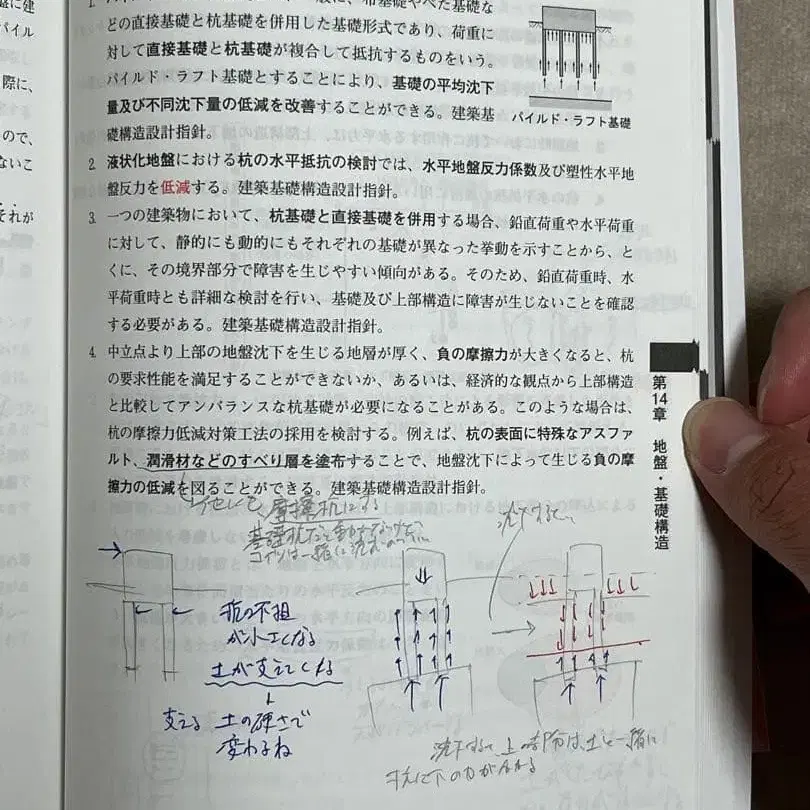 どの直接基礎と杭基礎を併用した基礎形式であり、荷重に
対して直接基礎と杭基礎が複合して抵抗するものをいう。
パイルド・ラフト基礎とすることにより、基礎の平均沈下
量及び不同沈下量の低減を改善することができる。建築基
礎構造設計指針。
パイルド・ラフト基礎
2. 液状化地盤における杭の水平抵抗の検討では、水平地盤反力係数及び塑性水平地
盤反力を低減する。建築基礎構造設計指針。
3. 一つの建築物において、杭基礎と直接基礎を併用する場合、鉛直荷重や水平荷重
に対して、静的にも動的にもそれぞれの基礎が異なった挙動を示すことから、と
くに、その境界部分で障害を生じやすい傾向がある。そのため、鉛直荷重時、水
平荷重時とも詳細な検討を行い、基礎及び上部構造に障害が生じないことを確認
する必要がある。建築基礎構造設計指針。
4. 中立点より上部の地盤沈下を生じる地層が厚く、負の摩擦力が大きくなると、杭
の要求性能を満足することができないか、あるいは、経済的な観点から上部構造
と比較してアンバランスな杭基礎が必要になることがある。このような場合は、
杭の摩擦力低減対策工法の採用を検討する。例えば、杭の表面に特殊なアスファ
ルト、潤滑材などのすべり層を塗布することで、地盤沈下によって生じる負の摩
擦力の低減を図ることができる。建築基礎構造設計指針。
第14章 地盤・基礎構造
摩擦杭になる
沈下すると、
杭の
が小さくなる
土が支えてくれる
支える 土の硬さで
変わるね
沈下すると 上の部分は土と一緒に
杭に下の力が